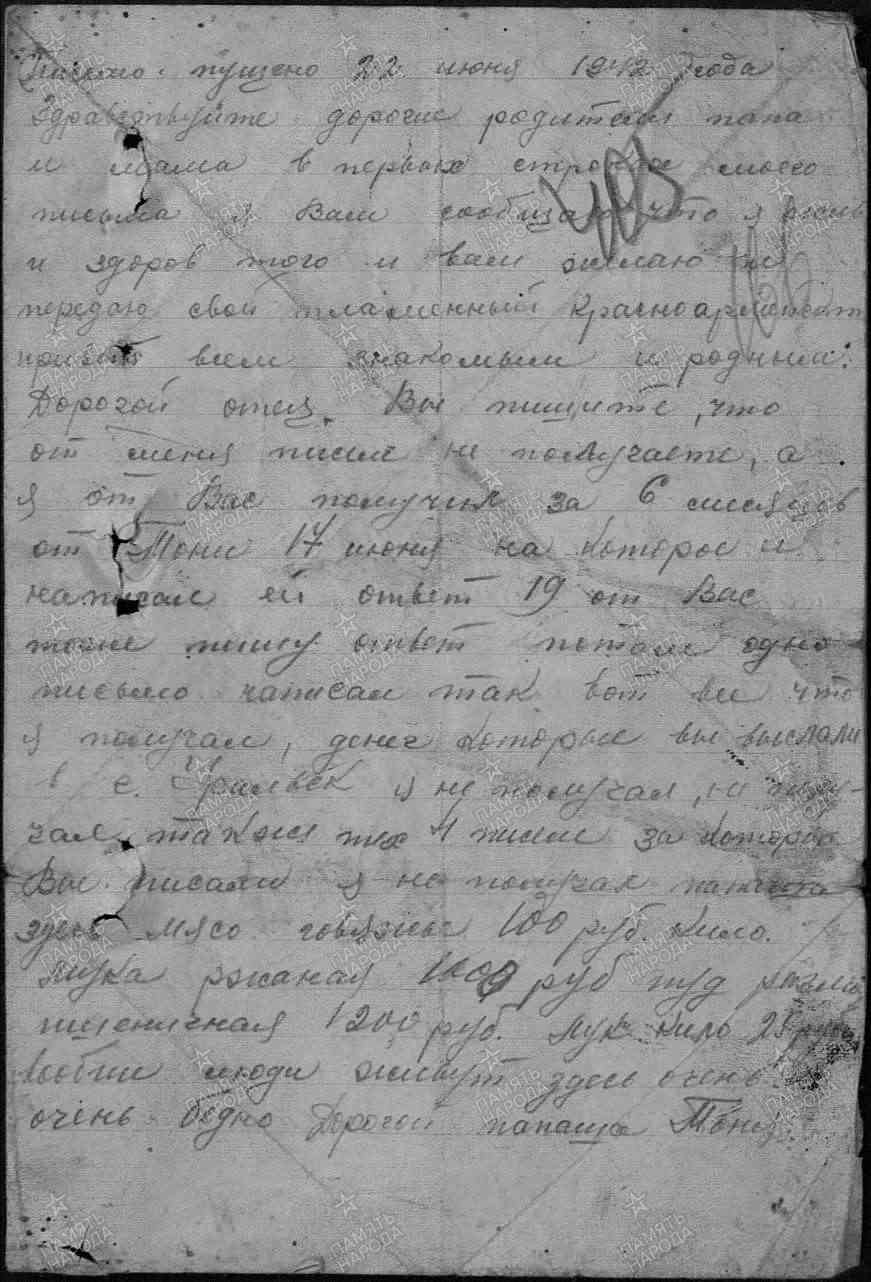 Письмо пущено 22 июня 1942 года
Здравствуйте дорогие родители папа
и мама в первых строках моего
письма я Вам сообщаю что я жив
и здоров того и вам желаю и
передаю свой пламенный красноармейский
привет всем знакомым и родным.
Дорогой отец. Вы пишите, что
от меня писем не получаете, а
я от Вас получил за 6 месяцев
от Тони 17 июня на которое и
написал ей ответ 19 от Вас
тоже пишу ответ потом одно
письмо написал так вот все что
я получал, денег которые вы выслали
в с. я не получал, не полу-
чал также тех 4 писем за которые
Вы писали я не получал папаша
здесь мясо говяжье 100 руб. кило.
Мука ржаная 1000 руб пуд
пшеничная 1200 руб. Лук кило 25 руб
вообще люди живут здесь очень
очень бедно Дорогой папаша Тоня